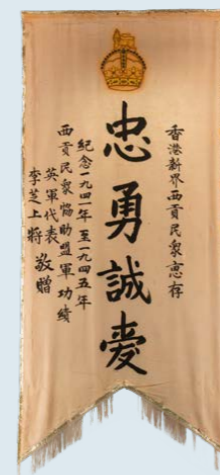 香港新界西貢民衆惠存
忠勇誠愛
紀念一九四一年至一九四五年
西貢民衆協助盟軍功績
英軍代表
李芝上將 敬贈